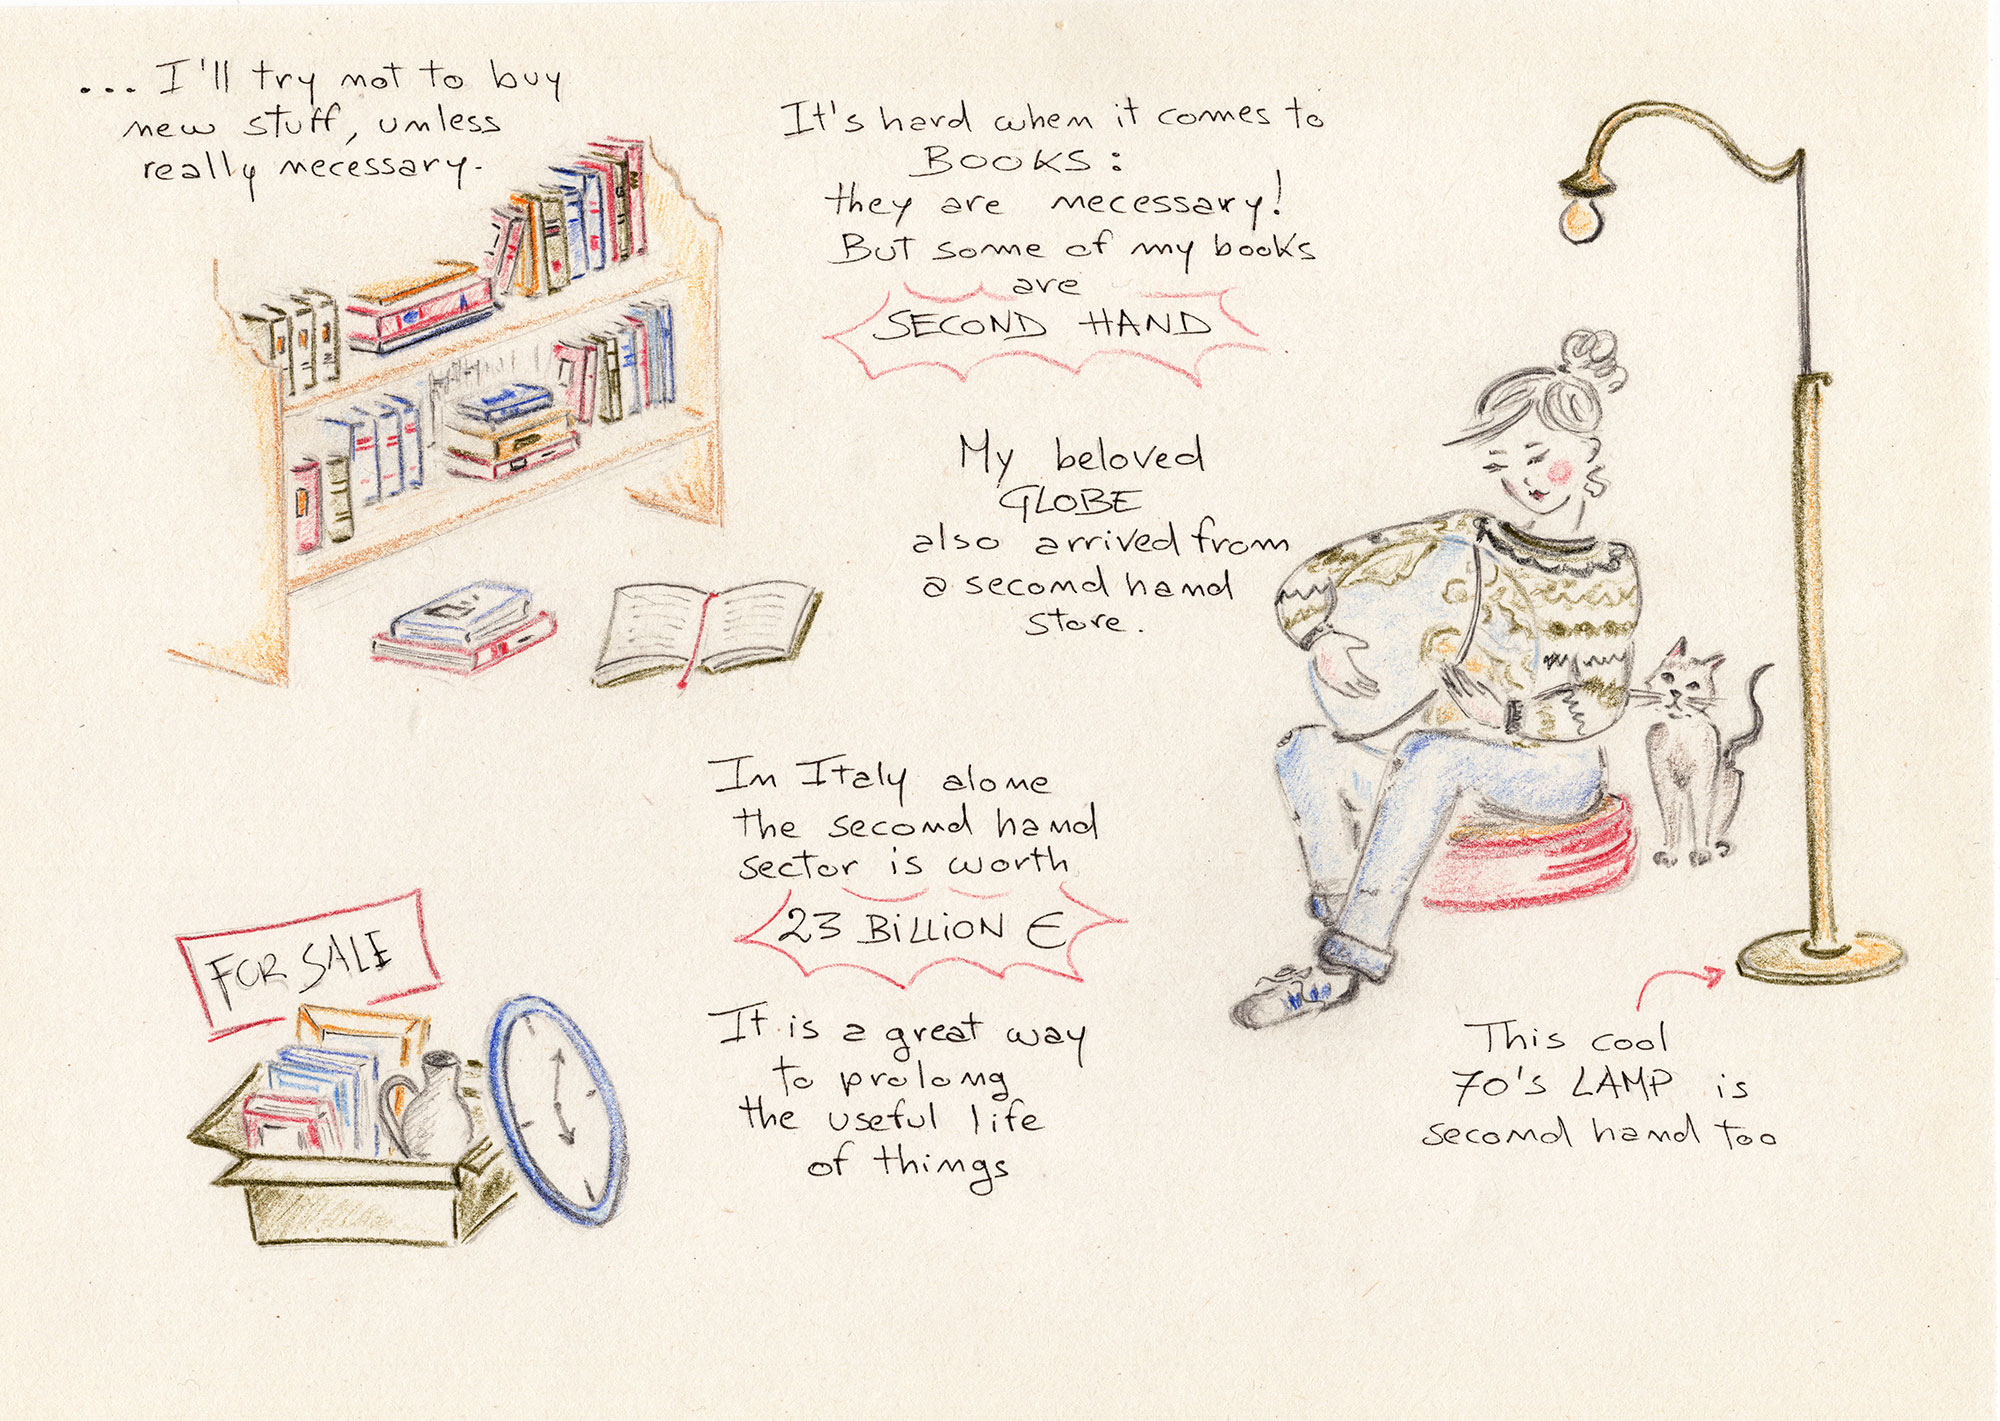 ... I'll try not to buy
new stuff, unless
really necessary.
It's hard when it comes to
BOOKS:
they are necessary!
But some of my books
are
SECOND HAND
My beloved
GLOBE
also arrived from
a second hand
store.
In Italy alone
the second hand
sector is worth
23 BILLION €
It is a great way
to prolong
the useful life
of things
FOR SALE
This cool
70's LAMP is
second hand too